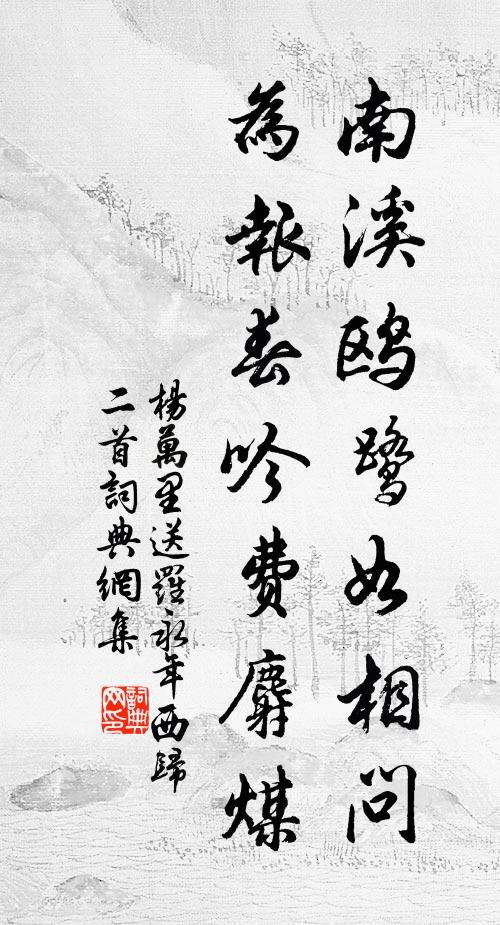 南溪鸥鹭如相問
為報春吟費麝煤
楊萬里送羅永年西歸
二首詞典網集
詞典網印